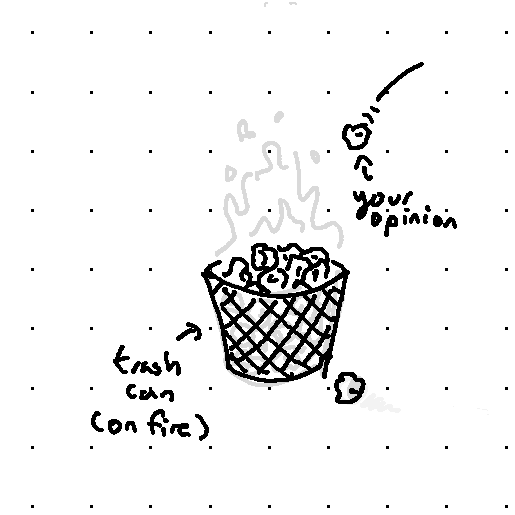 your
opinion
trash
can
(on fire)